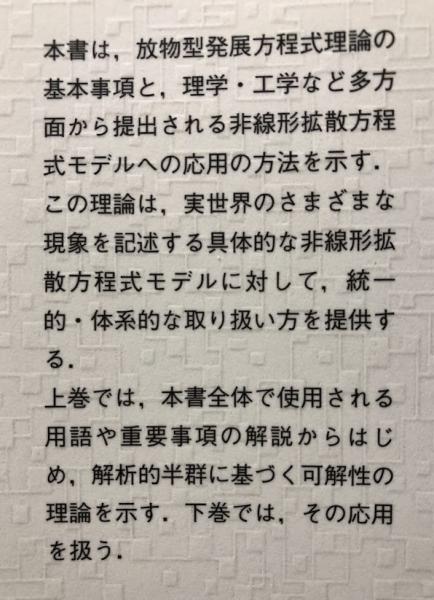 本書は，放物型発展方程式理論の
基本事項と，理学・工学など多方
面から提出される非線形拡散方程
式モデルへの応用の方法を示す．
この理論は，実世界のさまざまな
現象を記述する具体的な非線形拡
散方程式モデルに対して，統一
的・体系的な取り扱い方を提供す
る．
上巻では，本書全体で使用される
用語や重要事項の解説からはじ
め，解析的半群に基づく可解性の
理論を示す．下巻では，その応用
を扱う．